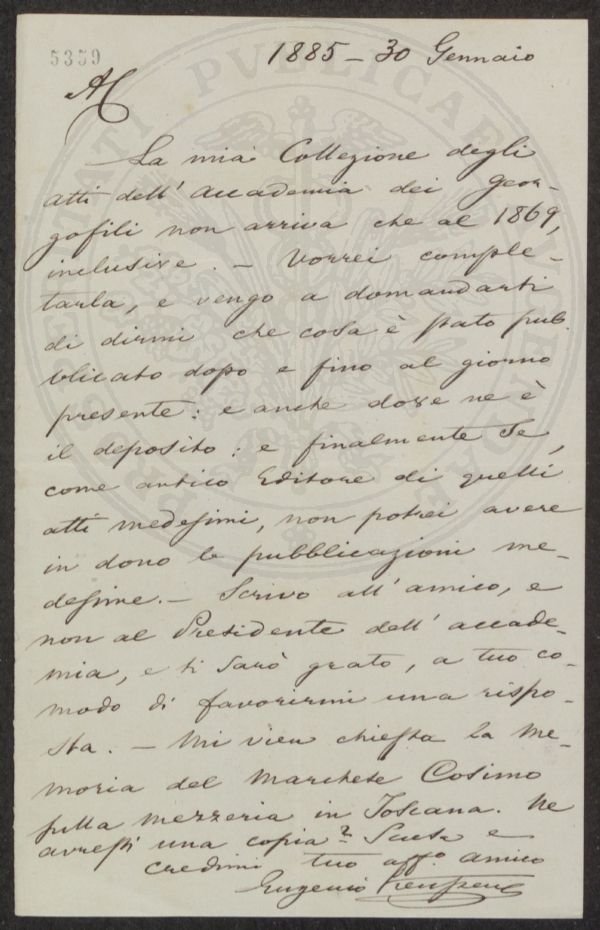 5359
1885 – 30 Gennaio
AC
La mia Collezione degli
atti dell' accademia dei Geor-
gofili non arriva che al 1869,
inclusive. – Vorrei comple-
tarla, e vengo a domandarti
di dirmi che cosa è stato pub
blicato dopo e fino al giorno
presente: e anche dove ne è
il deposito: e finalmente se,
come antico Editore di quelli
atti medesimi, non potrei avere
in dono le pubblicazioni me-
desime. – Scrivo all' amico, e
non al Presidente dell' accade-
mia, e ti sarò grato, a tuo co-
modo di favorirmi una rispo-
sta. – Mi vien chiesta la Me-
moria del Marchese Cosimo
sulla mezzeria in Toscana. Ne
avresti una copia? Scusa e
credimi tuo affo. amico
Eugenio